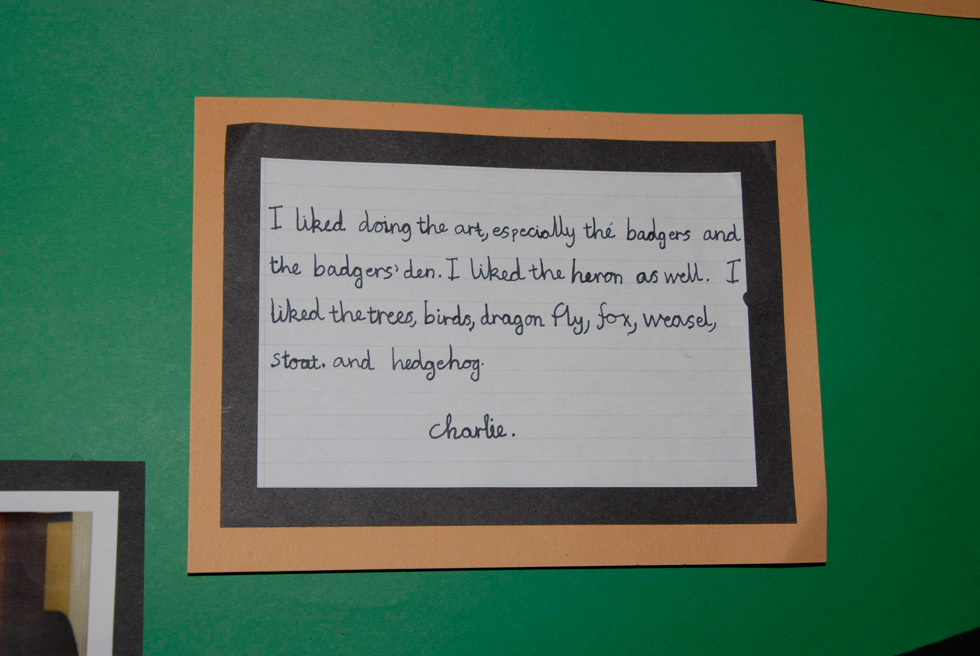 I liked doing the art, especially the badgers and
the badgers' den. I liked the heron as well. I
liked the trees, birds, dragon fly, fox, weasel,
stoat. and hedgehog.
Charlie.